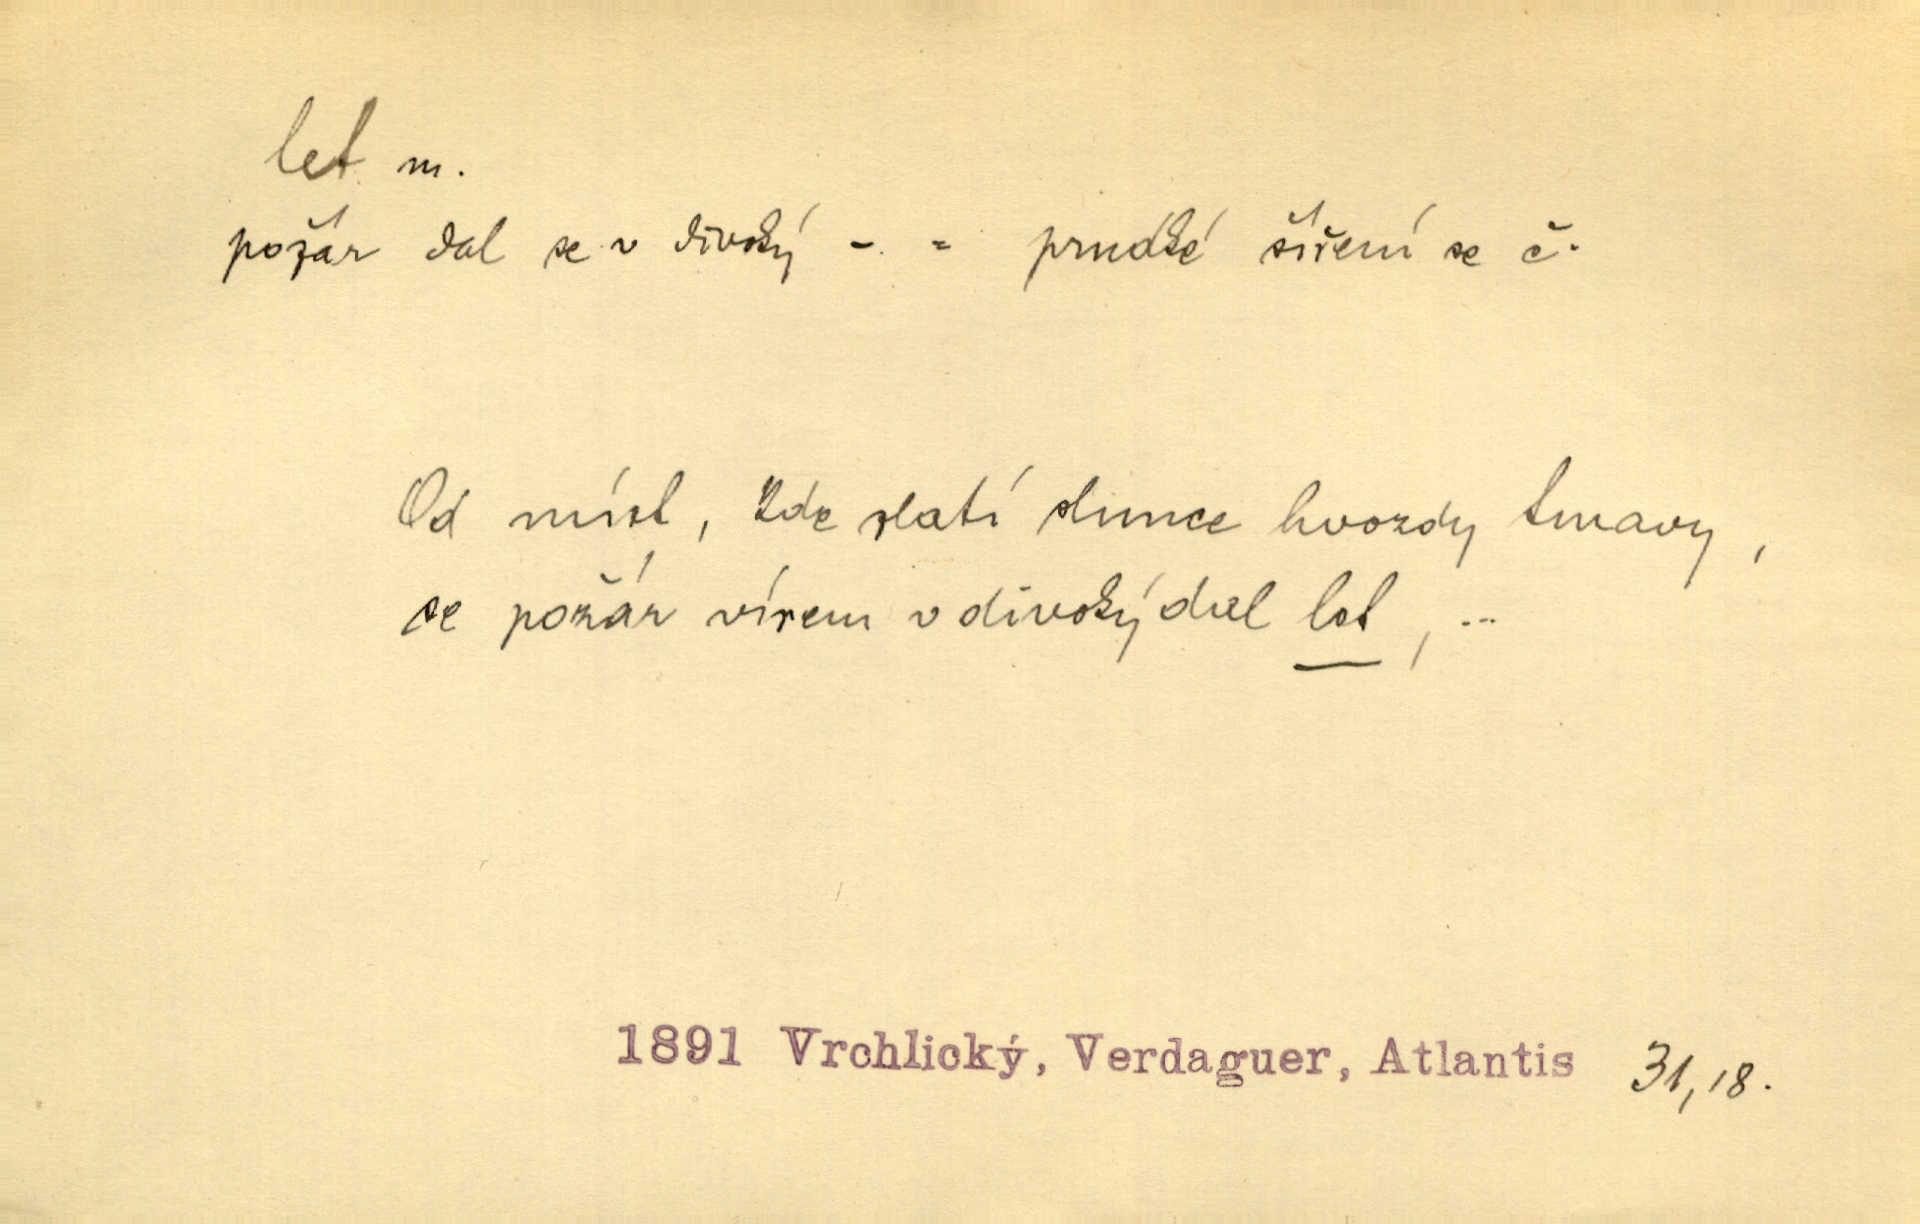 let m.
požár dal se v divoký - . = prudké šíření se č.
Od míst, kde zlatí slunce hvozdy tmavy,
se požár vírem v divoký dal let, ...
1891 Vrchlický, Verdaguer, Atlantis 31,18.